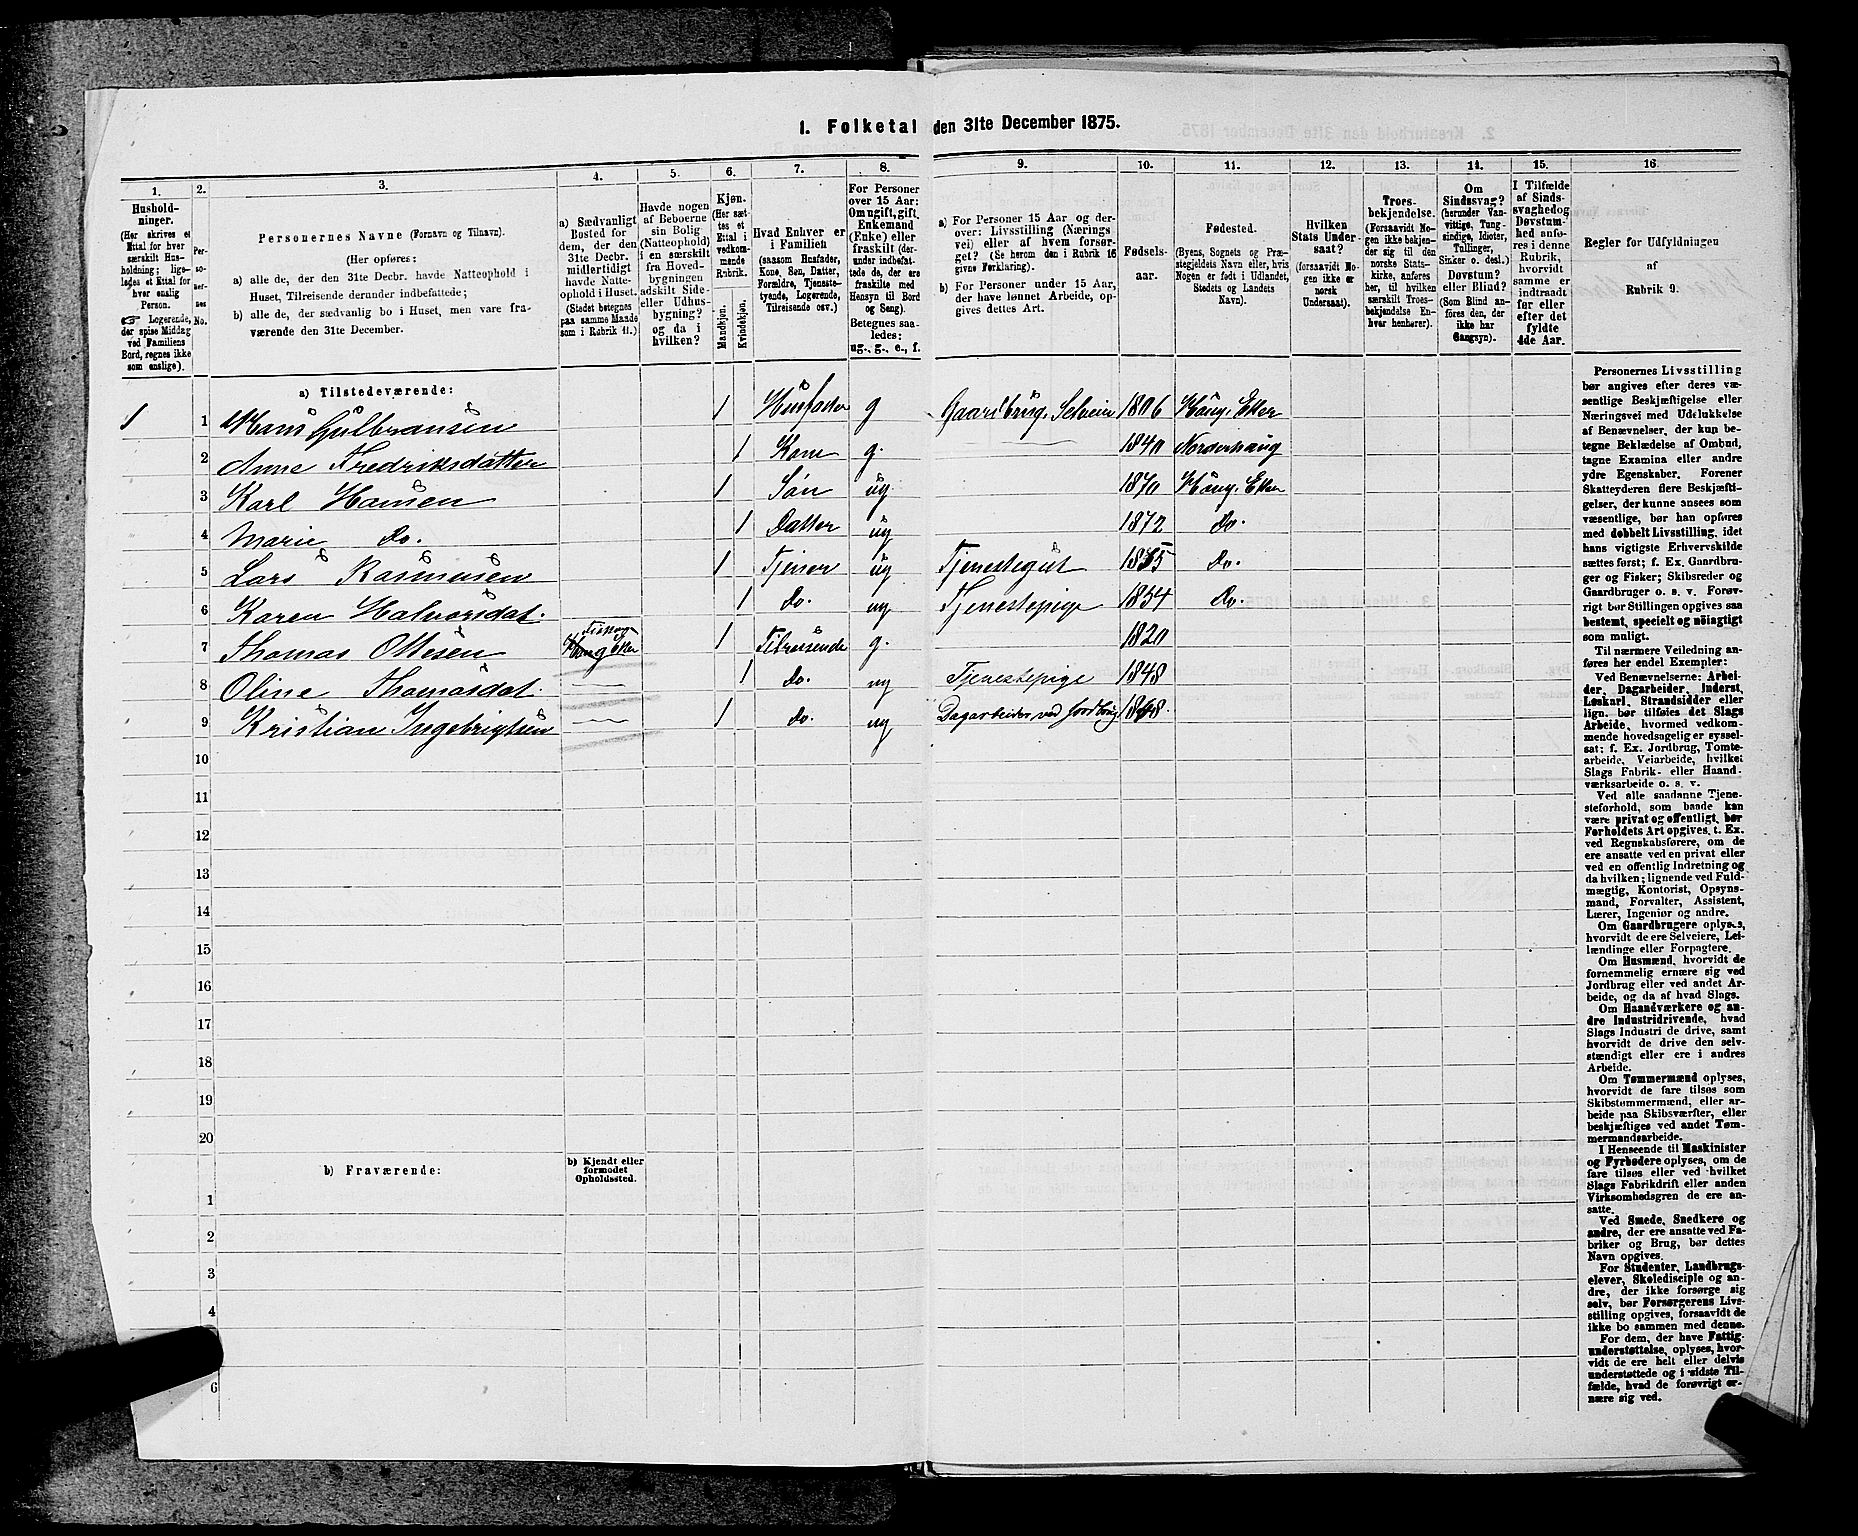 1. Folketal den 31te December 1875.
1. 2. 3. 4. 5. 6. 7. 8. 9. 10. 11. 12. 13. 14. 15. 16.
Hushold-
ninger.
(Her skrives et
Ettal for hver
særskilt Hus-
holdning; lige-
ledes et Ettal for
hver enslig
Person.
☞ Logerende,
der spise Middag
ved Familiens
Bord, regnes ikke
som enslige).
Per-
so-
ner-
nes
No.
Personernes Navne (Fornavn og Tilnavn).
(Her opføres:
a) alle de, der den 31te Decbr. havde Natteophold i
Huset, Tilreisende derunder indbefattede;
b) alle de, der sædvanlig bo i Huset, men vare fra-
værende den 31te December.
a) Sædvanligt
Bosted for
dem, der den
31te Decbr.
midlertidigt
havde Natte-
ophold i Huset.
(Stedet betegnes
paa samme Maade
som i Rubrik 11.)
Havde nogen
af Beboerne
sin Bolig
(Natteophold)
i en særskilt
fra Hoved-
bygningen
adskilt Side-
eller Udhus-
bygning?
og da i
hvilken?
Kjøn.
(Her sæt-
tes et
Ettal i
vedkom-
mende
Rubrik.
Mandkjøn.
Kvindekjøn.
Hvad Enhver er
i Familien
(saasom Husfader,
Kone, Søn, Datter,
Forældre, Tjeneste-
tyende, Logerende,
Tilreisende osv.)
For Personer
over 15 Aar:
Om ugift, gift,
Enkemand
(Enke) eller
fraskilt (der-
under indbefat-
tede de, der ere
fraskilte med
Hensyn til Bord
og Seng).
Betegnes saa-
ledes:
ug., g., e., f.
a) For Personer 15 Aar og der-
over: Livsstilling (Nærings
vei) eller af hvem forsør-
get? (Se herom den i Rubrik 16
givne Forklaring).
b) For Personer under 15 Aar,
der have lønnet Arbeide, op-
gives dettes Art.
Fødsels-
aar.
Fødested.
(Byens, Sognets og Præ-
stegjeldets Navn eller, hvis
Nogen er født i Udlandet,
Stedets og Landets
Navn).
Hvilken
Stats Under-
saat?
(forsaavidt No-
gen ikke er
norsk
Undersaat).
Troes-
bekjendelse.
(Forsaavidt No-
gen ikke bekjen-
der sig til den
norske Stats-
kirke, anføres
her, til hvilken
særskilt Troes-
bekjendelse En-
hver henhører).
Om
Sindssvag?
(herunder Van-
vittige, Tung-
sindige, Idioter,
Tullinger,
Sinker o. desl.)
Døvstum?
eller Blind?
(Som Blind an-
føres den, der
ikke har
Gangsyn).
I Tilfælde
af Sinds-
svaghed og
Døvstum-
hed anfø-
res i denne
Rubrik,
hvorvidt
samme er
indtraadt
før eller
efter det
fyldte
4de Aar.
Regler for Udfyldningen
af
Rubrik 9.
a) Tilstedeværende:
1 1 Hans Gulbransen 1 Husfader g Gaardbrug, Selveier 1806 Houg, Eker
2 Anne Fredriksdatter 1 Kone g. 1840 Norderhaug
3 Karl Hansen 1 Søn ug 1870 Houg, Eker
4 Marie Do. 1 Datter ug 1872 Do.
5 Lars Rasmusen 1 Tjener ug Tjenestegut 1855 Do.
6 Karen Halvorsdat. 1 Do. ug Tjenestepige 1854 Do.
7 Thomas Ottesen Houg Eker 1 Tilreisende g. 1820
8 Oline Thomasdat. — 1 Do. ug Tjenestepige 1848
9 Kristian Ingebrigtsen — 1 Do. ug Dagarbeider ved Jordbrug 1848.
10
11
12
13
14
15
16
17
18
19
20
b) Fraværende:
b) Kjendt eller
formodet
Opholdssted.
1
2
3
4
6
Personernes Livsstilling
bør angives efter deres væ-
sentlige Beskjæftigelse eller
Næringsvei med Udelukkelse
af Benævnelser, der kun be-
tegne Beklædelse af Ombud,
tagne Examina eller andre
ydre Egenskaber. Forener
Skatteyderen flere Beskjæfti-
gelser, der kunne ansees som
væsentlige, bør han opføres
med dobbelt Livsstilling, idet
hans vigtigste Erhvervskilde
sættes først; f. Ex. Gaardbru-
ger og Fisker; Skibsreder og
Gaardbruger o. s. v. Forøv-
rigt bør Stillingen opgives saa
bestemt, specielt og nøiagtigt
som muligt.
Til nærmere Veiledning an-
føres her endel Exempler:
Ved Benævnelserne: Arbei-
der, Dagarbeider, Inderst,
Løskarl, Strandsidder eller
lign. bør tilføies det Slags
Arbeide, hvormed vedkom-
mende hovedsagelig er syssel-
sat; f. Ex. Jordbrug, Tomte-
arbeide, Veiarbeide, hvilket
Slags Fabrik- eller Haand-
værksarbeide o. s. v.
Ved alle saadanne Tjene-
steforhold, som baade kan
være privat og offentligt, bør
Forholdets Art opgives, t. Ex.
ved Regnskabsførere, om de
ere ansatte ved en privat eller
ved en offentlig Indretning og
da hvilken; lignende ved Fuld-
mægtig, Kontorist, Opsyns-
mand, Forvalter, Assistent,
Lærer, Ingeniør og andre.
Om Gaardbrugere oplyses,
hvorvidt de ere Selveiere, Lei-
lændinge eller Forpagtere.
Om Husmænd, hvorvidt de
fornemmelig ernære sig ved
Jordbrug eller ved andet Ar-
beide, og da af hvad Slags.
Om Haandværkere og an-
dre Industridrivende, hvad
Slags Industri de drive, samt
hvorvidt de drive den selv-
stændigt eller ere i andres
Arbeide.
Om Tømmermænd oplyses,
hvorvidt de fare tilsøs som
Skibstømmermænd, eller ar-
beide paa Skibsværfter, eller
beskjæftiges ved andet Tøm-
mermandsarbeide.
I Henseende til Maskinister
og Fyrbødere oplyses, om de
fare tilsøs eller ved hvilket
Slags Fabrikdrift eller anden
Virksomhedsgren de ere an-
satte.
Ved Smede, Snedkere og
andre, der ere ansatte ved Fa-
briker og Brug, bør dettes
Navn opgives.
For Studenter, Landbrugs-
elever, Skoledisciple og an-
dre, der ikke forsørge sig
selv, bør Forsørgerens Livs-
stilling opgives, forsaavidt de
ikke bo sammen med denne.
For dem, der have Fattig-
understøttelse, oplyses, hvor-
vidt de ere helt eller delvis
understøttede og i sidste Til-
fælde, hvad de forøvrigt er-
nære sig ved.